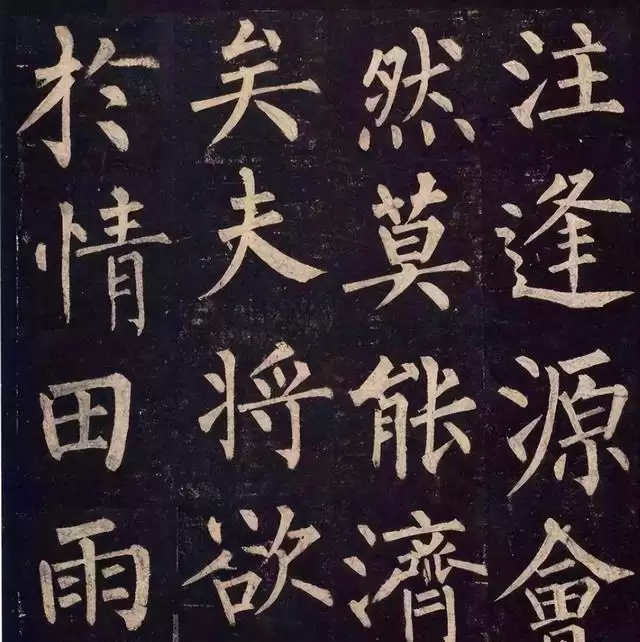 注逢源會
然莫能濟
矣夫将欲
於情田雨